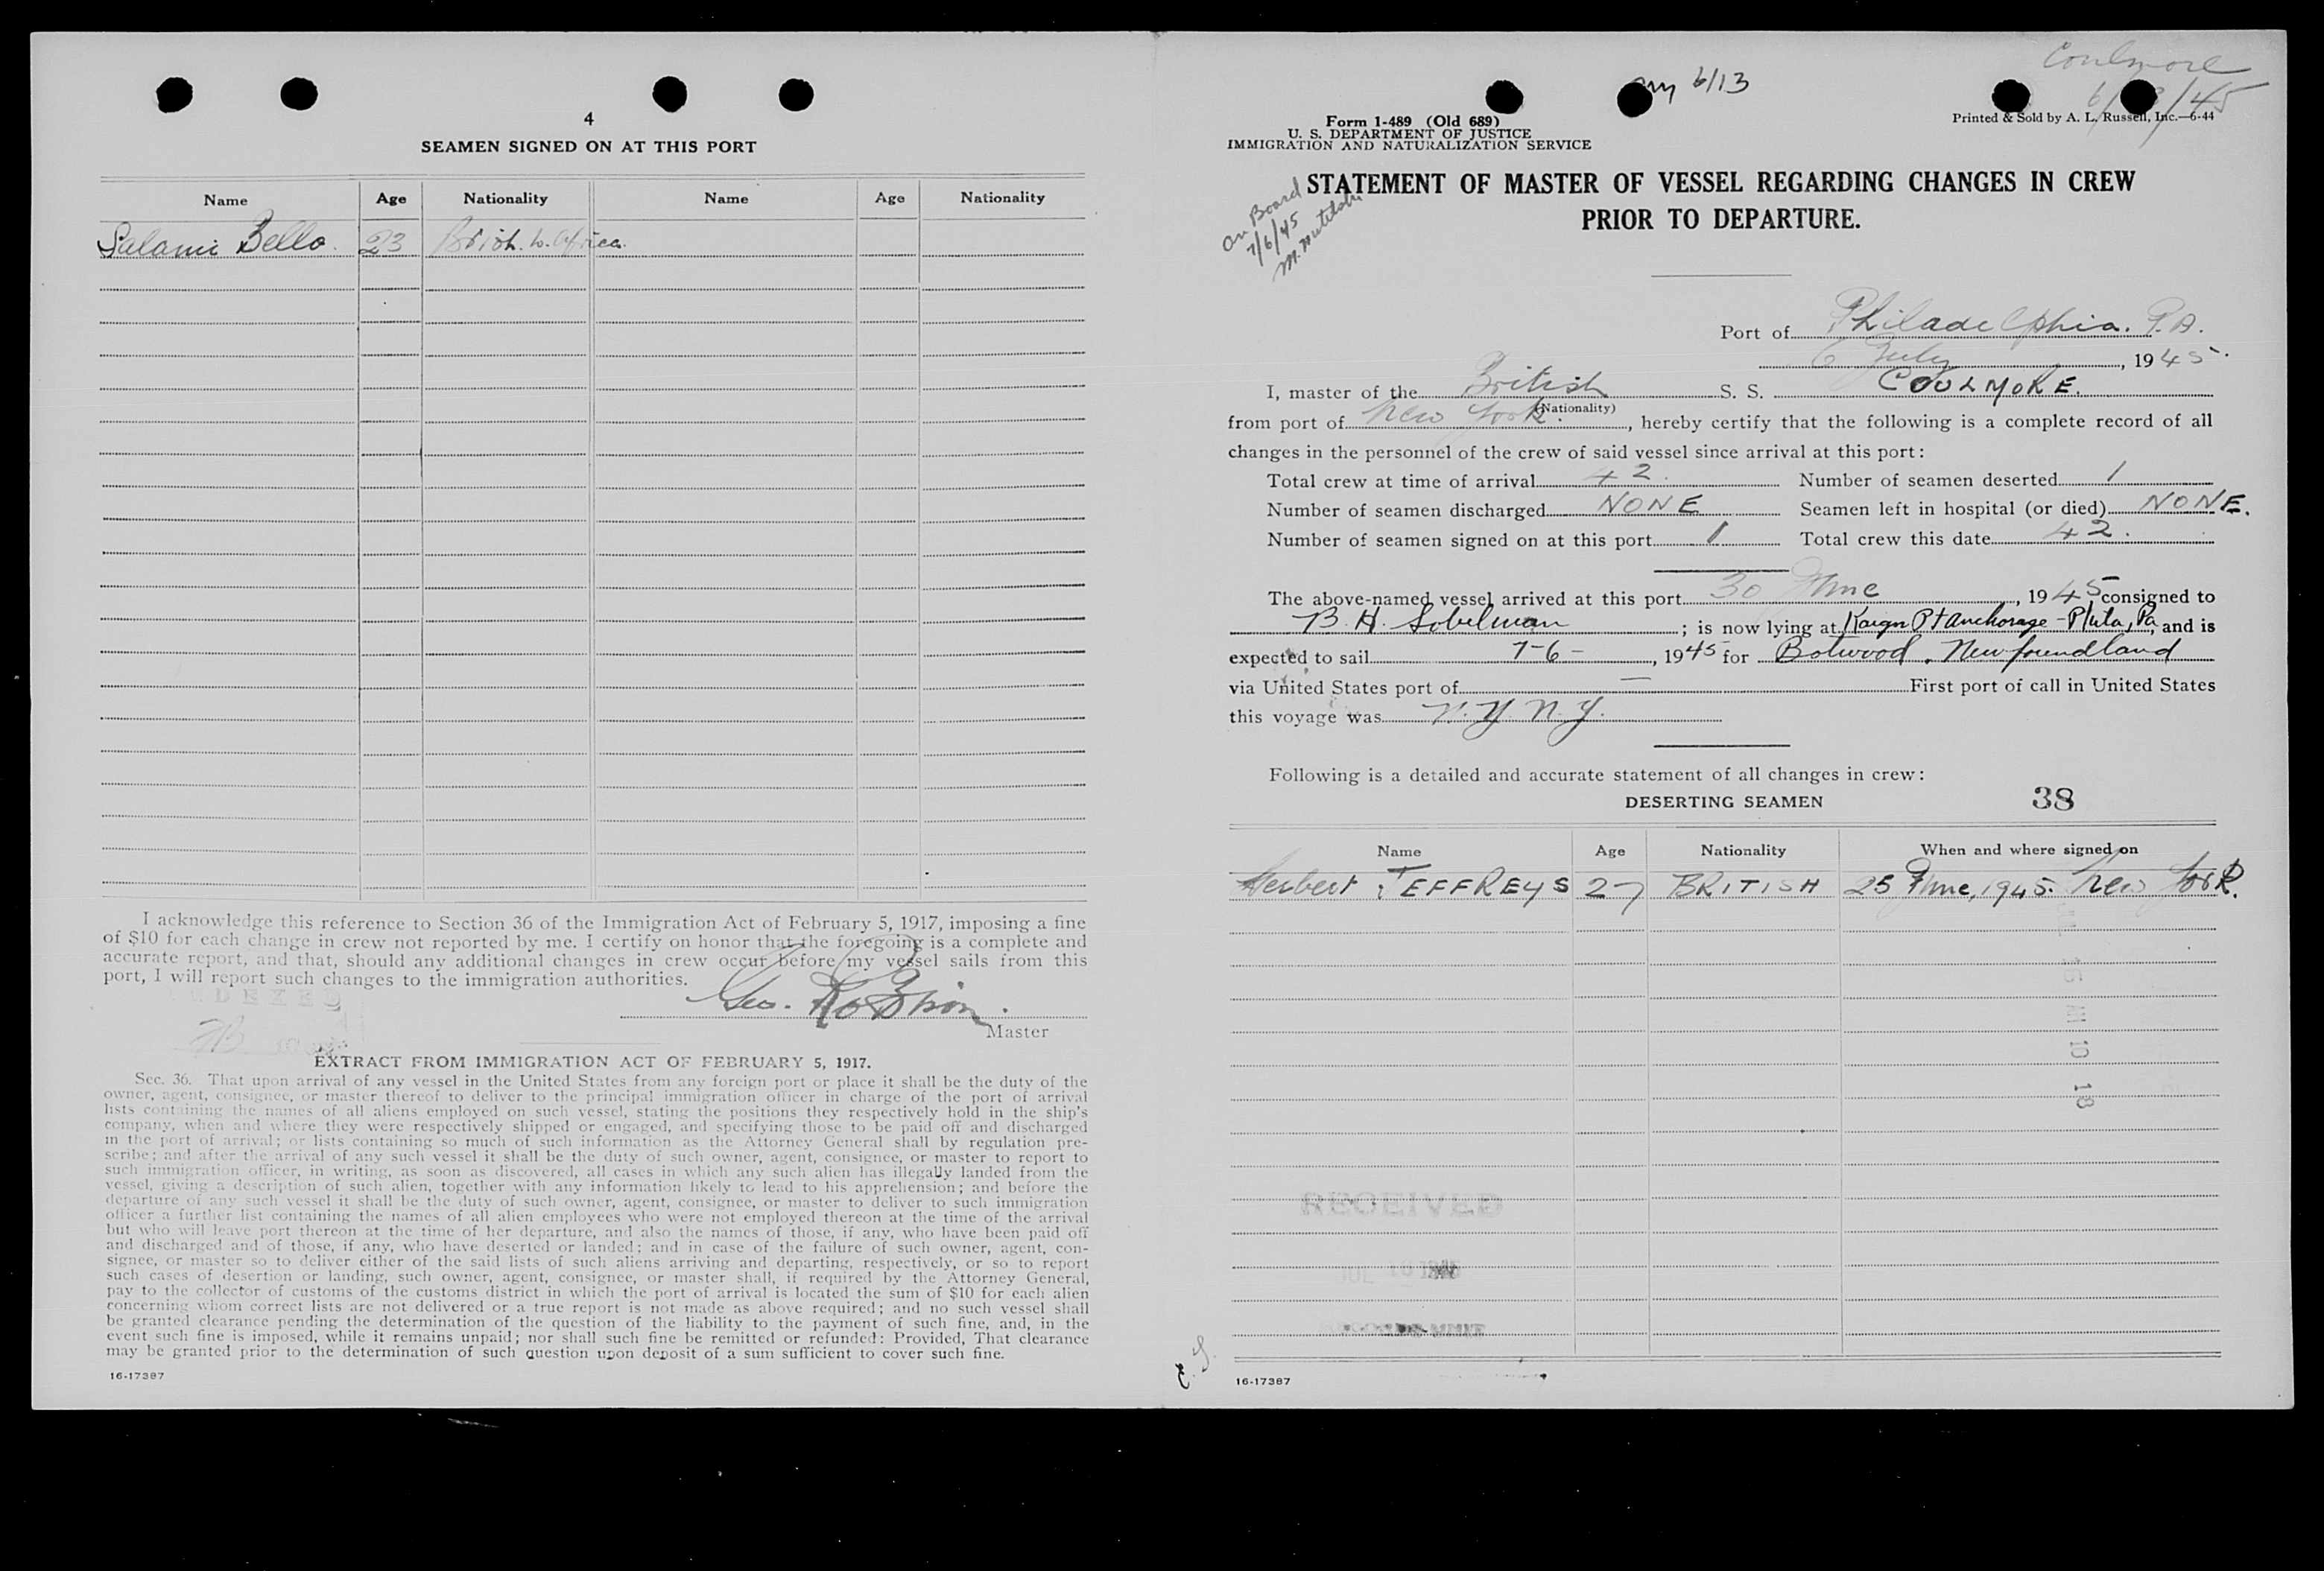 4
SEAMEN SIGNED ON AT THIS PORT
Name Age Nationality Name Age Nationality
Salami Bello. 23 Brish. W. Africa.
I acknowledge this reference to Section 36 of the Immigration Act of February 5, 1917, imposing a fine
of $10 for each change in crew not reported by me. I certify on honor that the foregoing is a complete and
accurate report, and that, should any additional changes in crew occur before my vessel sails from this
port, I will report such changes to the immigration authorities.
Geo. Robson.
Master
EXTRACT FROM IMMIGRATION ACT OF FEBRUARY 5, 1917.
Sec. 36. That upon arrival of any vessel in the United States from any foreign port or place it shall be the duty of the
owner, agent, consignee, or master thereof to deliver to the principal immigration officer in charge of the port of arrival
lists containing the names of all aliens employed on such vessel, stating the positions they respectively hold in the ship's
company, when and where they were respectively shipped or engaged, and specifying those to be paid off and discharged
in the port of arrival; or lists containing so much of such information as the Attorney General shall by regulation pre-
scribe; and after the arrival of any such vessel it shall be the duty of such owner, agent, consignee, or master to report to
such immigration officer, in writing, as soon as discovered, all cases in which any such alien has illegally landed from the
vessel, giving a description of such alien, together with any information likely to lead to his apprehension; and before the
departure of any such vessel it shall be the duty of such owner, agent, consignee, or master to deliver to such immigration
officer a further list containing the names of all alien employees who were not employed thereon at the time of the arrival
but who will leave port thereon at the time of her departure, and also the names of those, if any, who have been paid off
and discharged and of those, if any, who have deserted or landed; and in case of the failure of such owner, agent, con-
signee, or master so to deliver either of the said lists of such aliens arriving and departing, respectively, or so to report
such cases of desertion or landing, such owner, agent, consignee, or master shall, if required by the Attorney General,
pay to the collector of customs of the customs district in which the port of arrival is located the sum of $10 for each alien
concerning whom correct lists are not delivered or a true report is not made as above required; and no such vessel shall
be granted clearance pending the determination of the question of the liability to the payment of such fine, and, in the
event such fine is imposed, while it remains unpaid; nor shall such fine be remitted or refunded: Provided, That clearance
may be granted prior to the determination of such question upon deposit of a sum sufficient to cover such fine.
16-17387
Coulmore
6/13
Form I-489 (Old 689)
U. S. DEPARTMENT OF JUSTICE
IMMIGRATION AND NATURALIZATION SERVICE
Printed & Sold by A. L. Russell, Inc.—6-44
On Board
7/6/45
STATEMENT OF MASTER OF VESSEL REGARDING CHANGES IN CREW
PRIOR TO DEPARTURE.
Port of Philadelphia. P.A.
6 July, 1945.
I, master of the British S. S. COULMORE.
(Nationality)
from port of New York., hereby certify that the following is a complete record of all
changes in the personnel of the crew of said vessel since arrival at this port:
Total crew at time of arrival 42. Number of seamen deserted 1
Number of seamen discharged NONE Seamen left in hospital (or died) NONE.
Number of seamen signed on at this port 1 Total crew this date 42.
The above-named vessel arrived at this port 30 June, 1945 consigned to
B. H. Sobelman; is now lying at Kaign Pt Anchorage - Phila, Pa, and is
expected to sail 7-6-, 1945 for Botwood, Newfoundland
via United States port of — First port of call in United States
this voyage was N.Y. N.Y.
Following is a detailed and accurate statement of all changes in crew:
DESERTING SEAMEN 38
Name Age Nationality When and where signed on
Herbert JEFFREYS 27 BRITISH 25 June, 1945. New York.
RECEIVED
16-17387